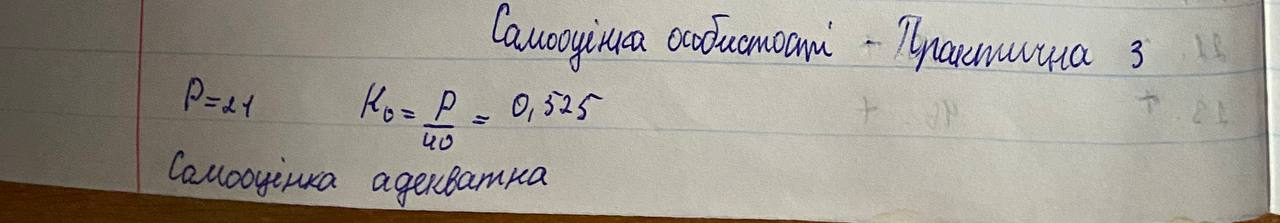 Самооцінка особистості - Практична 3
P=21 K₀ = P/40 = 0,525
Самооцінка адекватна